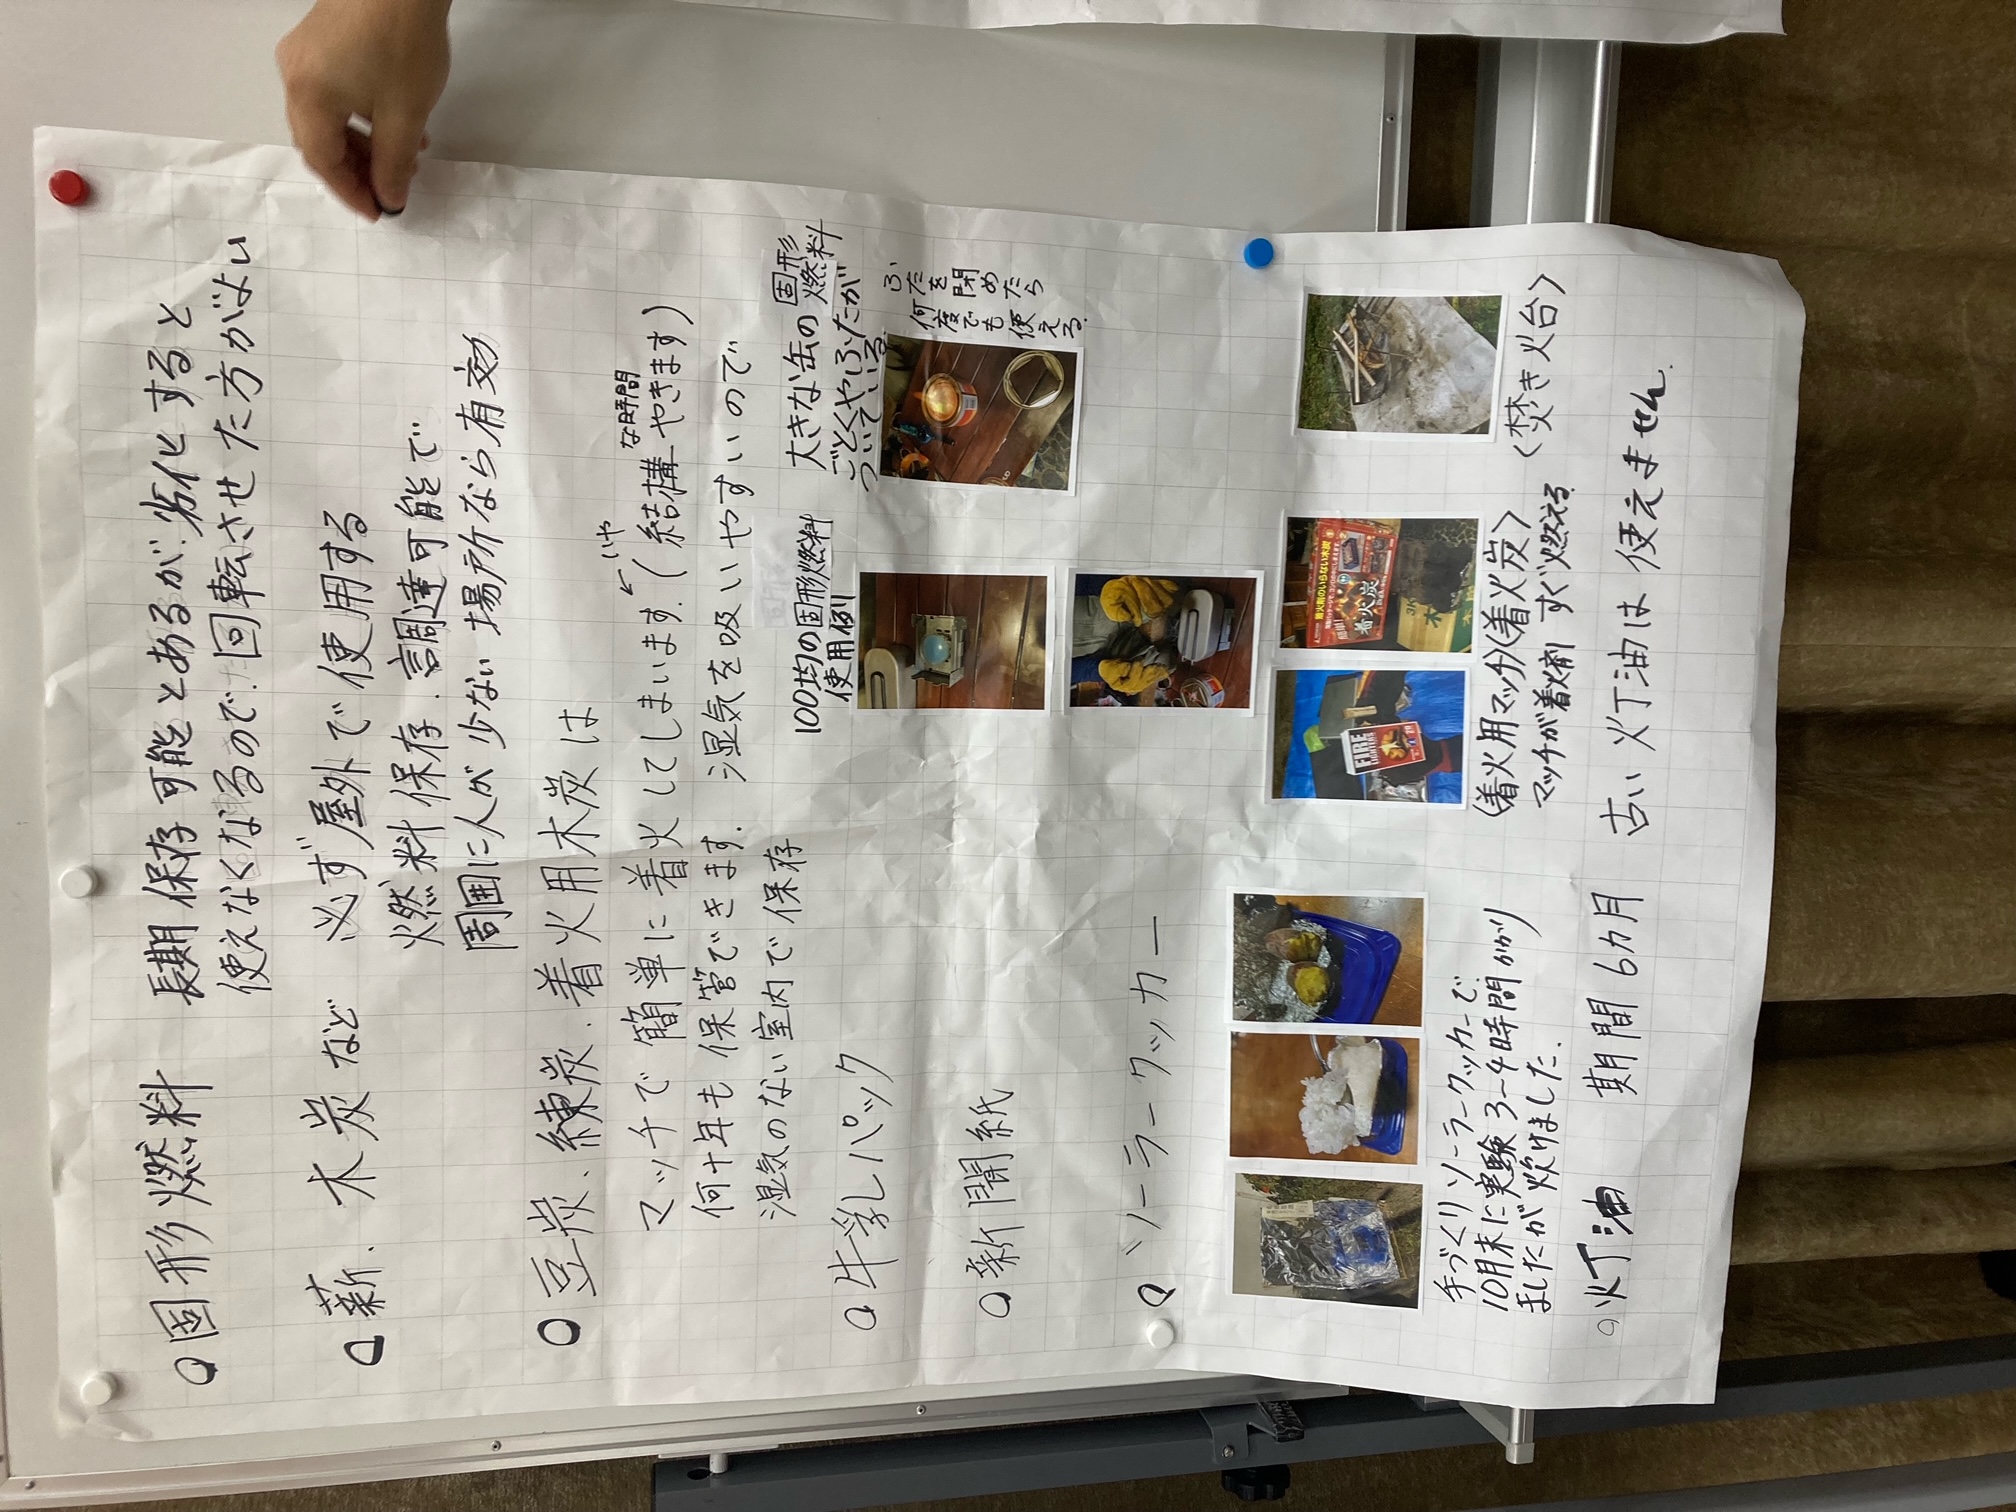 ○固形燃料 長期保存可能とあるが、劣化すると
使えなくなるので、回転させた方がよい
○薪、木炭など 必ず屋外で使用する
燃料保存、調達可能で
周囲に人が少ない場所なら有効
○豆炭、練炭、着火用木炭は
マッチで簡単に着火してしまいます。(結構な時間やきます)
←いや
何十年も保管できます。湿気を吸いやすいので
湿気のない室内で保存
○牛乳パック
○新聞紙
100均の固形燃料
使用例
大きな缶の固形燃料
ごとくやふたが
ついている。
ふたを閉めたら
何度でも使える。
○ソーラークッカー
FIRE
着火炭
手づくりソーラークッカーで、
10月末に実験 3~4時間かかり
ましたが炊けました。
〈着火用マッチ〉〈着火炭〉
マッチが着火剤 すぐ燃える
〈焚き火台〉
○灯油 期間6カ月 古い灯油は使えません。